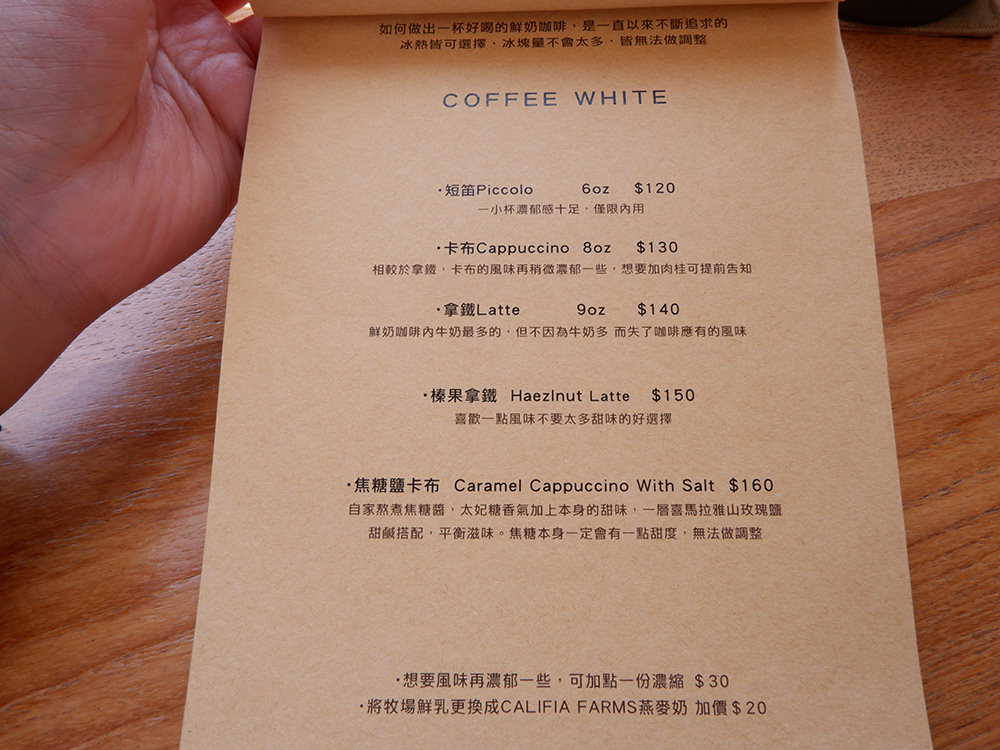 如何做出一杯好喝的鮮奶咖啡，是一直以來不斷追求的
冰熱皆可選擇，冰塊量不會太多，皆無法做調整
COFFEE WHITE
·短笛Piccolo 6oz $120
一小杯濃郁感十足，僅限內用
·卡布Cappuccino 8oz $130
相較於拿鐵，卡布的風味再稍微濃郁一些，想要加肉桂可提前告知
·拿鐵Latte 9oz $140
鮮奶咖啡內牛奶最多的，但不因為牛奶多 而失了咖啡應有的風味
·榛果拿鐵 Haezlnut Latte $150
喜歡一點風味不要太多甜味的好選擇
·焦糖鹽卡布 Caramel Cappuccino With Salt $160
自家熬煮焦糖醬，太妃糖香氣加上本身的甜味，一層喜馬拉雅山玫瑰鹽
甜鹹搭配，平衡滋味。焦糖本身一定會有一點甜度，無法做調整
·想要風味再濃郁一些，可加點一份濃縮 $30
·將牧場鮮乳更換成CALIFIA FARMS燕麥奶 加價$20